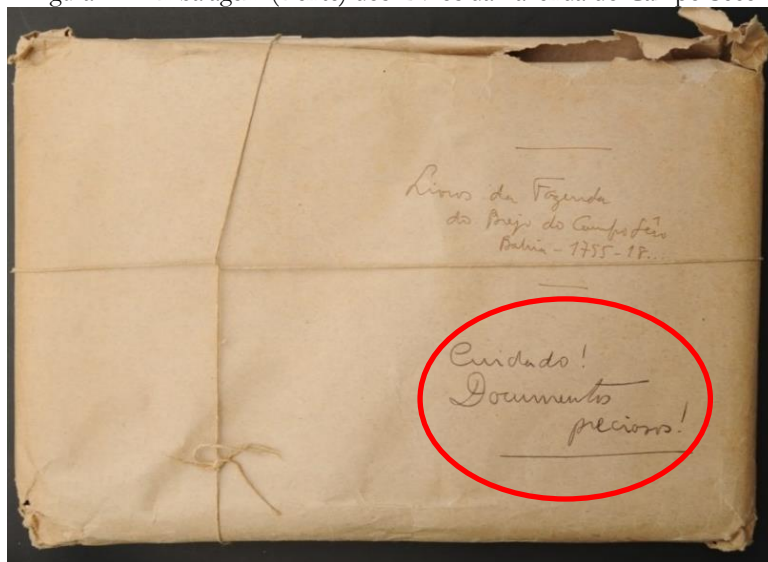 Livros da Fazenda
do Brejo do Campo Sêco
Bahia - 1755-18...
Cuidado!
Documentos
preciosos!